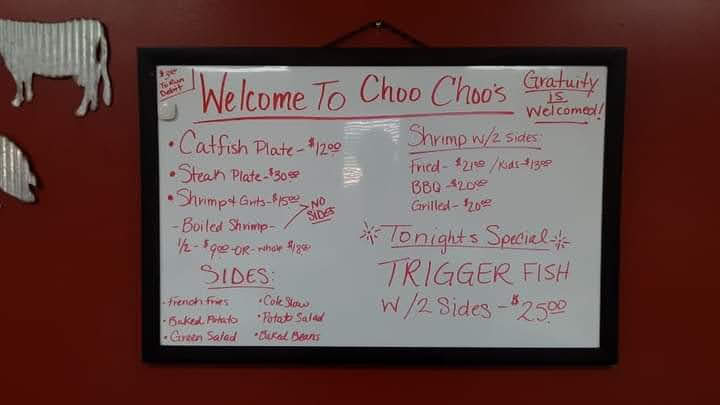 To Run
Debit
Welcome To Choo Choo's
Gratuity
is
Welcomed!
• Catfish Plate - $12.00
• Steak Plate - $30.00
• Shrimp & Grits - $15.00
NO
SIDES
- Boiled Shrimp -
1/2 - $9.00 - OR - whole $18.00
SIDES:
• French Fries
• Baked Potato
• Green Salad
• Cole Slaw
• Potato Salad
• Baked Beans
Shrimp w/2 sides:
Fried - $21.00 / Kids - $13.00
BBQ - $20.00
Grilled - $20.00
Tonights Special
TRIGGER FISH
w/2 Sides - $25.00